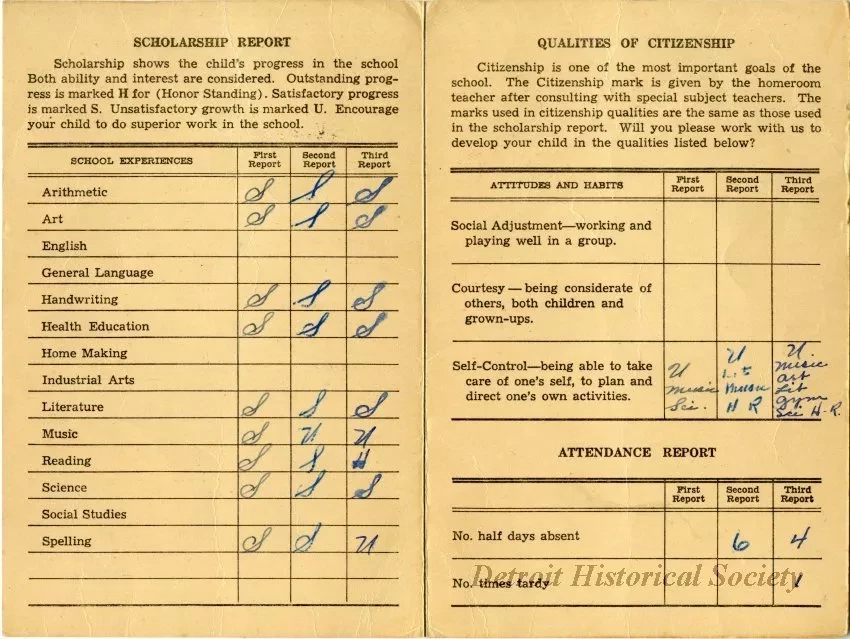 SCHOLARSHIP REPORT
Scholarship shows the child's progress in the school
Both ability and interest are considered. Outstanding prog-
ress is marked H for (Honor Standing). Satisfactory progress
is marked S. Unsatisfactory growth is marked U. Encourage
your child to do superior work in the school.
SCHOOL EXPERIENCES First Report Second Report Third Report
Arithmetic S S S
Art S S S
English
General Language
Handwriting S S S
Health Education S S S
Home Making
Industrial Arts
Literature S S S
Music S U U
Reading S S H
Science S S S
Social Studies
Spelling S S U
QUALITIES OF CITIZENSHIP
Citizenship is one of the most important goals of the
school. The Citizenship mark is given by the homeroom
teacher after consulting with special subject teachers. The
marks used in citizenship qualities are the same as those used
in the scholarship report. Will you please work with us to
develop your child in the qualities listed below?
ATTITUDES AND HABITS First Report Second Report Third Report
Social Adjustment—working and
playing well in a group.
Courtesy — being considerate of
others, both children and
grown-ups.
Self-Control—being able to take
care of one's self, to plan and
direct one's own activities.
U
Music
Sci.
U
Lit
Music
H R
U
Music
art
Lit
Gym
Sci H-R.
ATTENDANCE REPORT
First Report Second Report Third Report
No. half days absent 6 4
No. times tardy 1
Detroit Historical Society